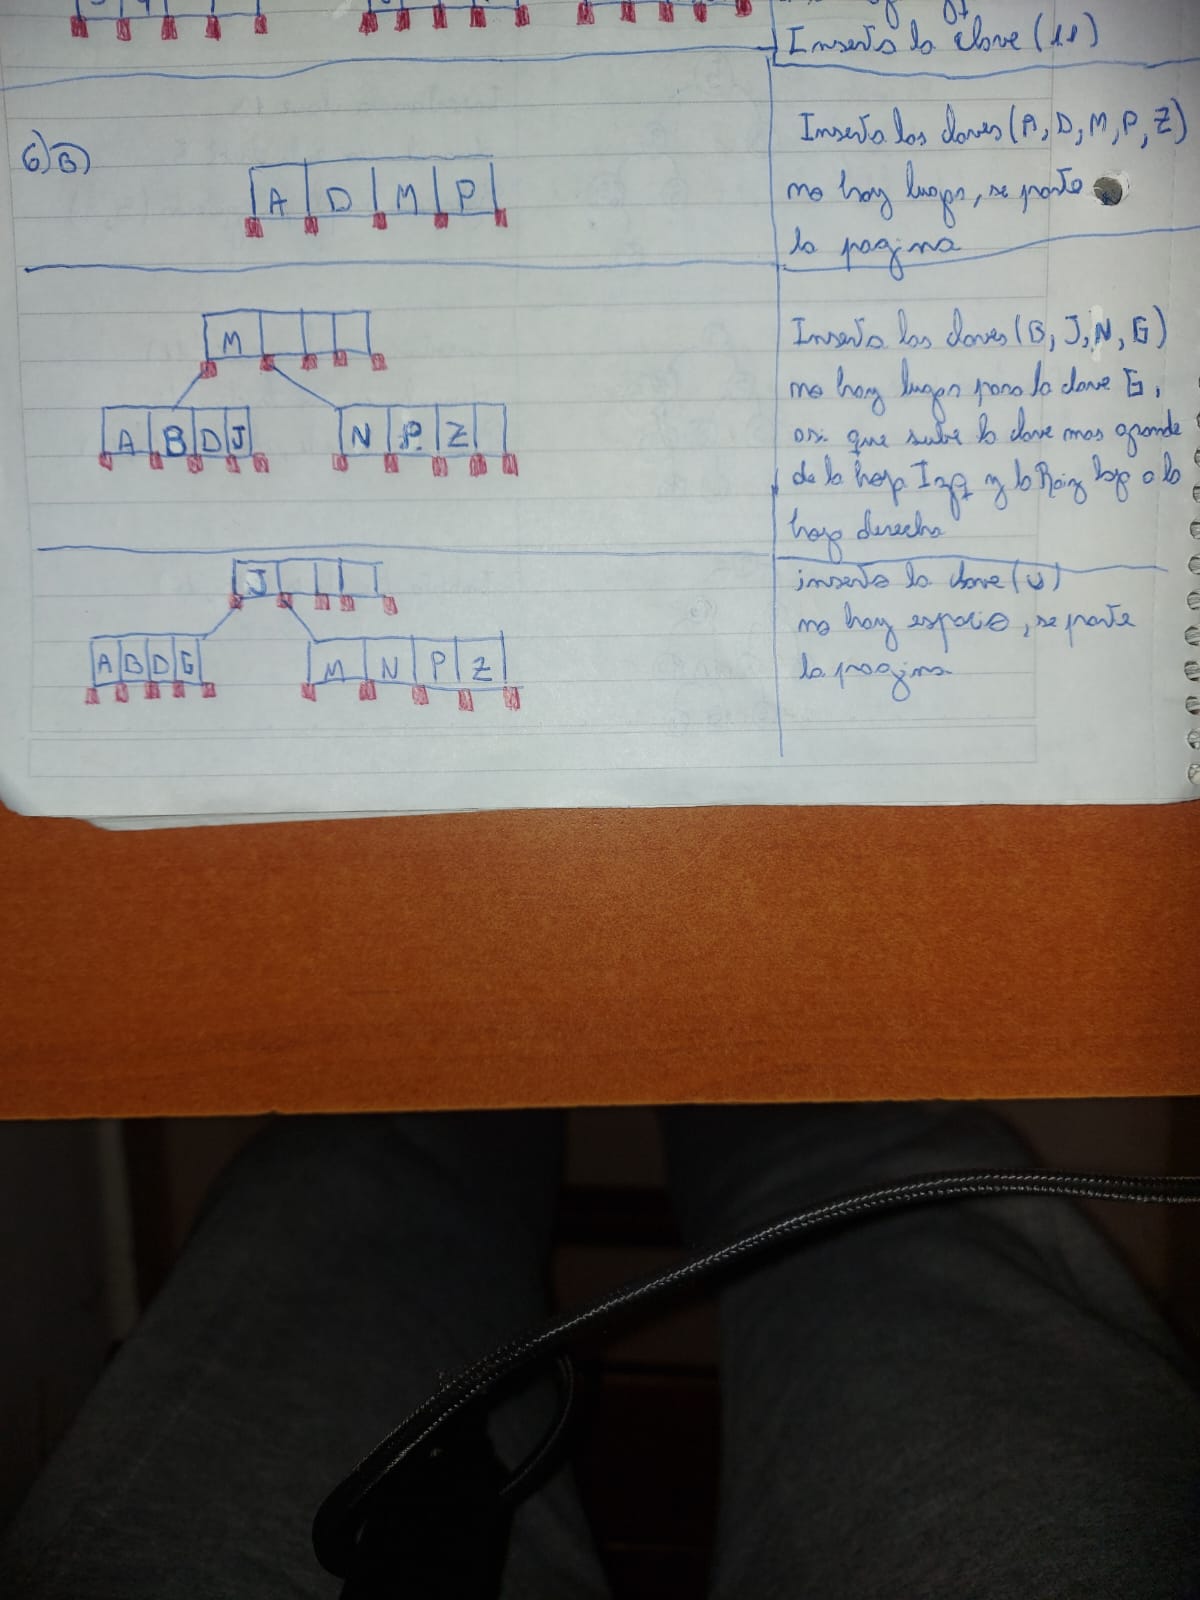 Inserto la clave (11)
6)B)
A D M P
Inserto las claves (A, D, M, P, Z)
no hay lugar, se parte
la pagina
M
A B D J
N P Z
Inserto las claves (B, J, N, G)
no hay lugar para la clave G,
asi que sube la clave mas grande
de la hoja Izq y la Raiz baja a la
hoja derecha
J
A B D G
M N P Z
inserto la clave (U)
no hay espacio, se parte
la pagina